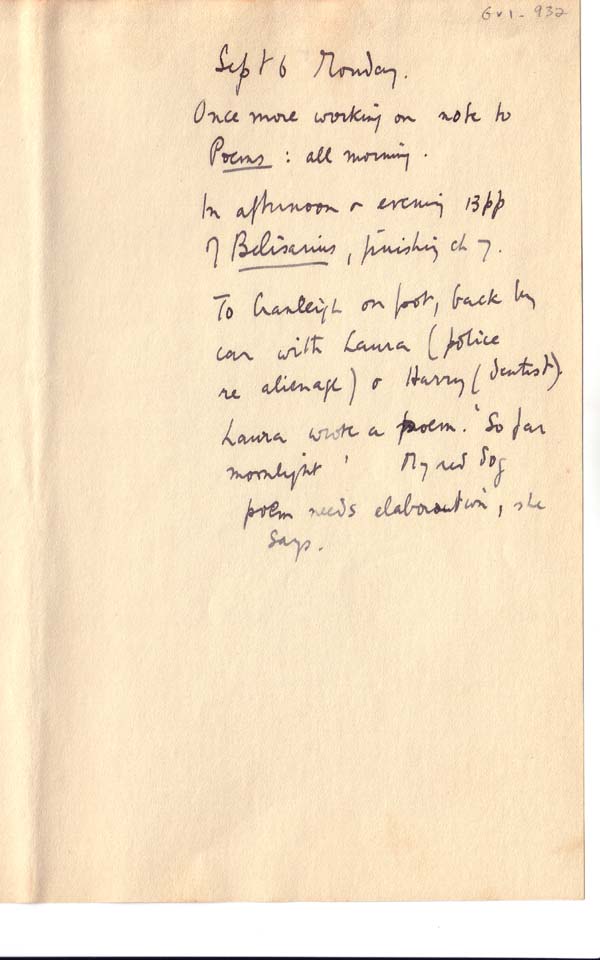 GV1-932
Sept 6 Monday.
Once more working on note to
Poems : all morning.
In afternoon & evening 13pp
of Belisarius, finishing ch 7.
To Cranleigh on foot, back by
car with Laura (police
re alienage) & Harry (dentist).
Laura wrote a poem. 'So far
moonlight' My red dog
poem needs elaboration, she
says.